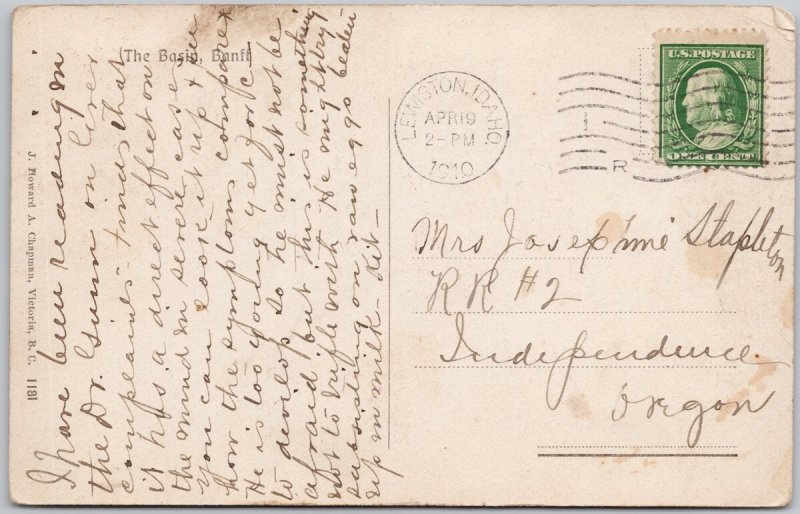 (The Basin, Banff)
J. Howard A. Chapman, Victoria, B. C. 1181
I have been reading in
the Dr. Gunn on liver
complaints - finds that
it has a direct effect on
the mind in severe cases
You can look it up & see
how the symptoms compare
He is too young yet for it
to develop so he must not be
afraid but this is something
not to trifle with. He might try
subsisting on raw eggs beaten
up in milk - diet -
LEWISTON, IDAHO
APR 19
2-PM
1910
R
U.S. POSTAGE
ONE CENT
Mrs Josephine Stapleton
RR #2
Independence
Oregon